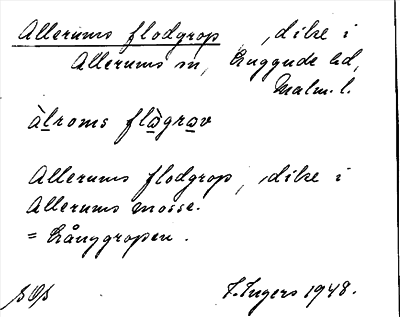 Allerums flodgrop, dike i
Allerums sn, Luggude hd,
Malm. l.
àlroms flògrov
Allerums flodgrop, dike i
Allerums mosse.
= Långgropen.
I. Ingers 1948.